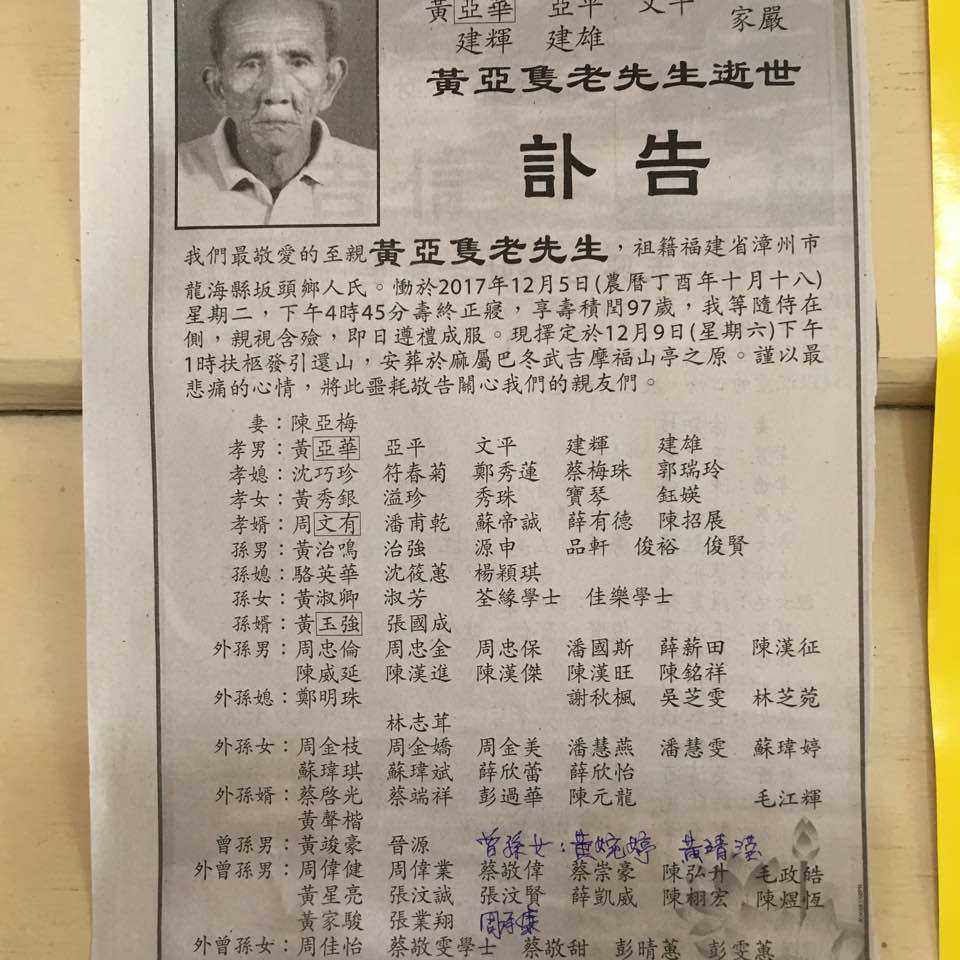 黃亞華 亞平 文平 家嚴
建輝 建雄
黃亞隻老先生逝世
訃告
我們最敬愛的至親黃亞隻老先生，祖籍福建省漳州市
龍海縣坂頭鄉人氏。慟於2017年12月5日(農曆丁酉年十月十八)
星期二，下午4時45分壽終正寢，享壽積閏97歲，我等隨侍在
側，親視含殮，即日遵禮成服。現擇定於12月9日(星期六)下午
1時扶柩發引還山，安葬於麻屬巴冬武吉摩福山亭之原。謹以最
悲痛的心情，將此噩耗敬告關心我們的親友們。
妻：陳亞梅
孝男：黃亞華 亞平 文平 建輝 建雄
孝媳：沈巧珍 符春菊 鄭秀蓮 蔡梅珠 郭瑞玲
孝女：黃秀銀 溢珍 秀珠 寶琴 鈺媖
孝婿：周文有 潘甫乾 蘇帝誠 薛有德 陳招展
孫男：黃治鳴 治強 源申 品軒 俊裕 俊賢
孫媳：駱英華 沈筱蕙 楊穎琪
孫女：黃淑卿 淑芳 荃緣學士 佳樂學士
孫婿：黃玉強 張國成
外孫男：周忠倫 周忠金 周忠保 潘國斯 薛薪田 陳漢征
陳威延 陳漢進 陳漢傑 陳漢旺 陳銘祥
外孫媳：鄭明珠 謝秋楓 吳芝雯 林芝菀
林志茸
外孫女：周金枝 周金嬌 周金美 潘慧燕 潘慧雯 蘇瑋婷
蘇瑋琪 蘇瑋斌 薛欣蕾 薛欣怡
外孫婿：蔡啓光 蔡端祥 彭過華 陳元龍 毛江輝
黃聲楷
曾孫男：黃竣豪 晉源 曾孫女：黃婉婷 黃靖瀅
外曾孫男：周偉健 周偉業 蔡敬偉 蔡崇豪 陳弘升 毛政皓
黃星亮 張汶誠 張汶賢 薛凱威 陳栩宏 陳煜恆
黃家駿 張業翔 周承康
外曾孫女：周佳怡 蔡敬雯學士 蔡敬甜 彭晴蕙 彭雯蕙